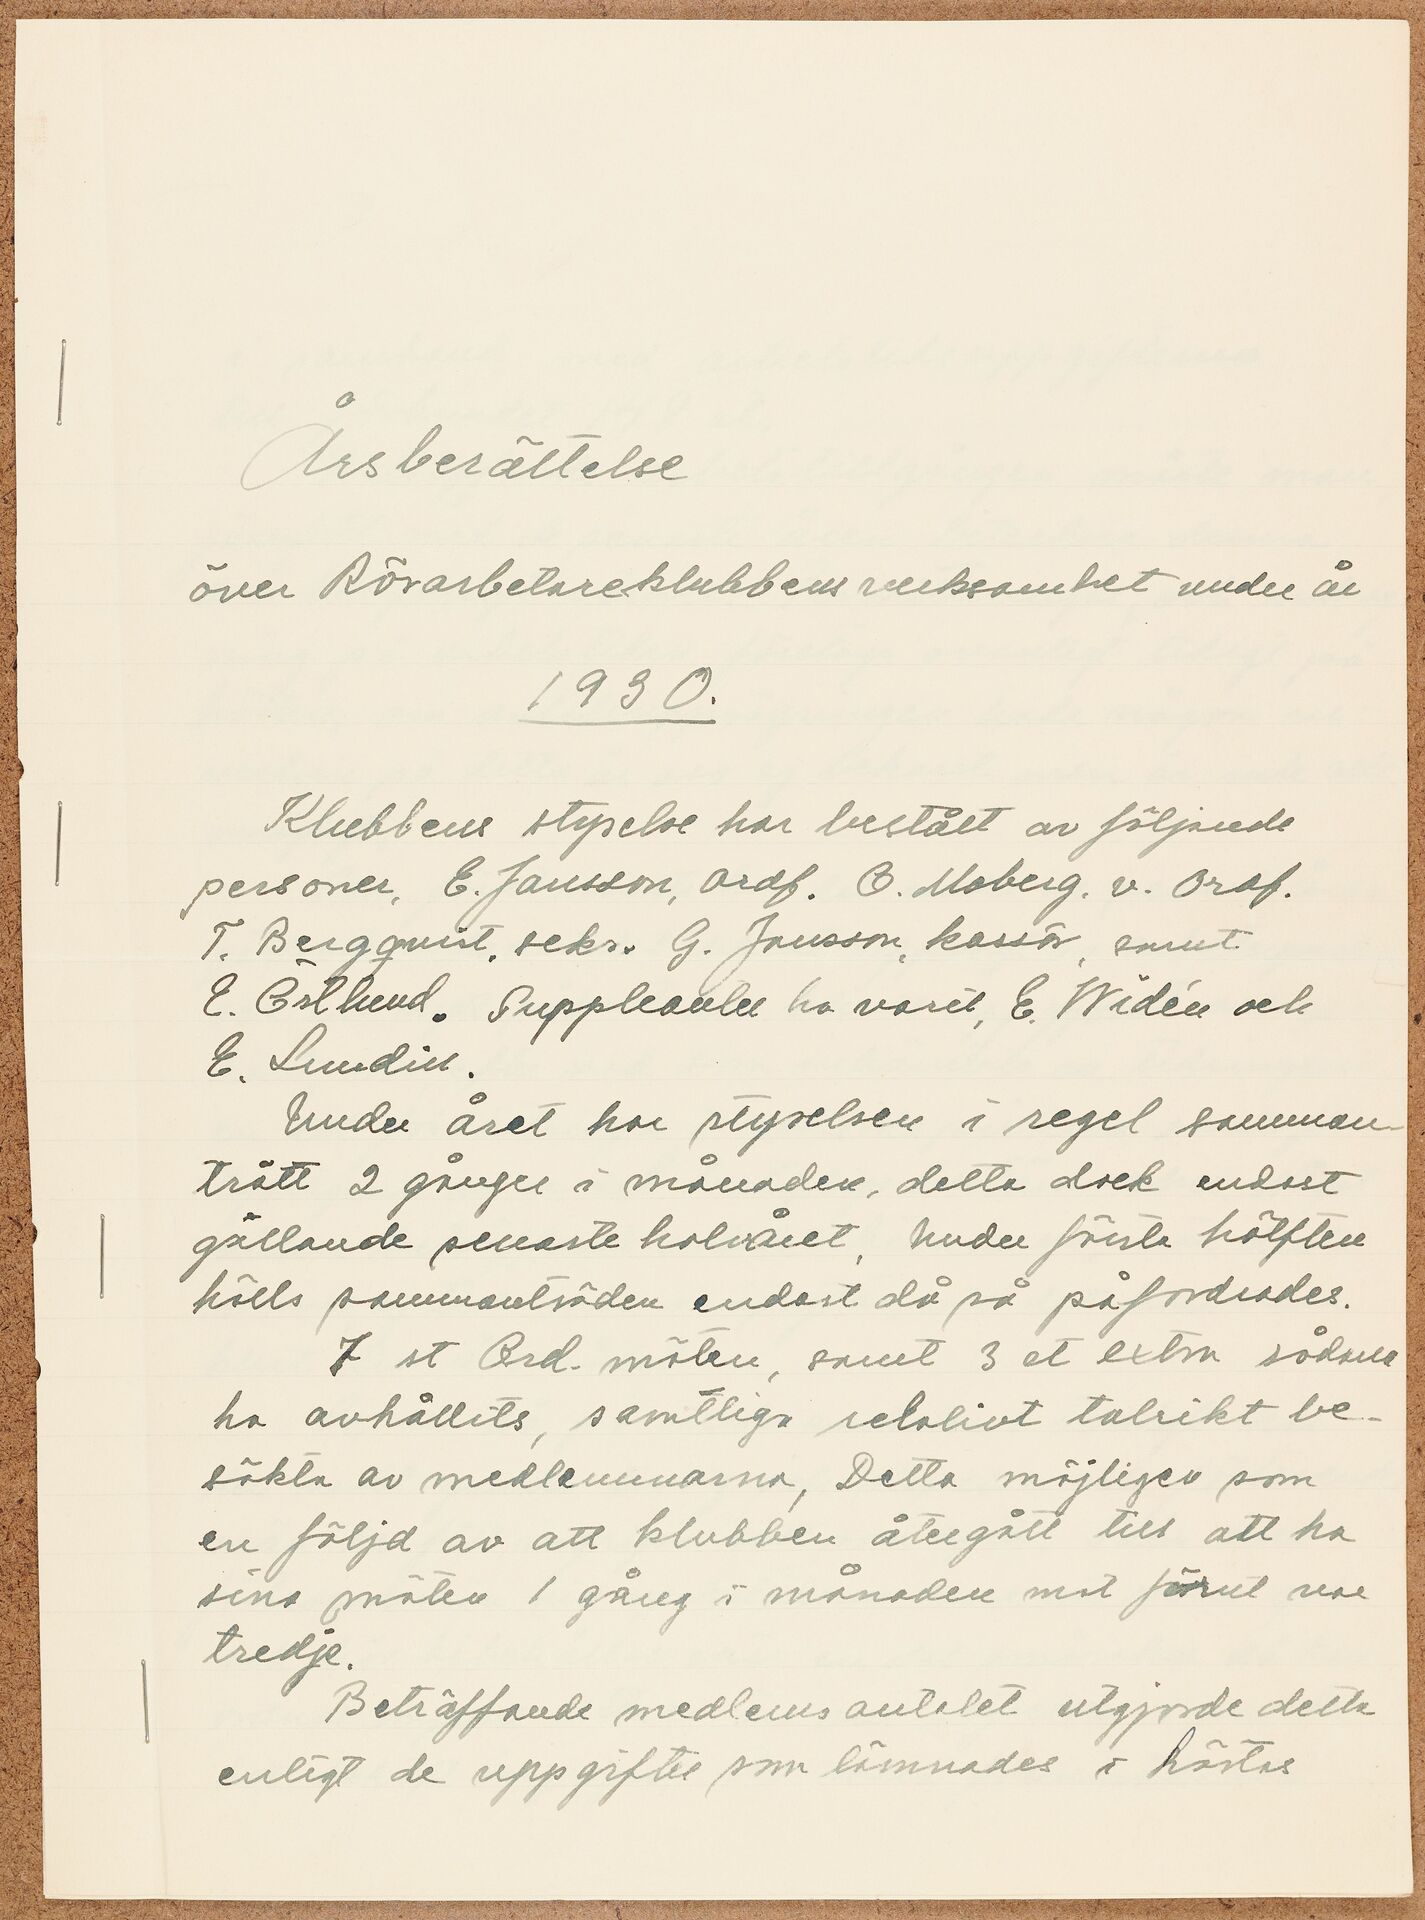 Årsberättelse
över Rörarbetareklubbens verksamhet under år
1930.
Klubbens styrelse har bestått av följande
personer, E. Jansson, ordf. O. Moberg. v. Ordf.
T. Bergqvist, sekr. G. Jonsson, kassör, samt
E. Östlund. Suppleanter ha varit, E. Widén och
E. Lundin.
Under året har styrelsen i regel samman-
trätt 2 gånger i månaden, detta dock endast
gällande senaste halvåret, under första hälften
hölls sammanträden endast då så påfordrades.
7 st Ord. möten, samt 3 st extra sådana
ha avhållits, samtliga relativt talrikt be-
sökta av medlemmarna, Detta möjligen som
en följd av att klubben återgått till att ha
sina möten 1 gång i månaden mot förut var
tredje.
Beträffande medlemsantalet utgjorde detta
enligt de uppgifter som lämnades i höstas